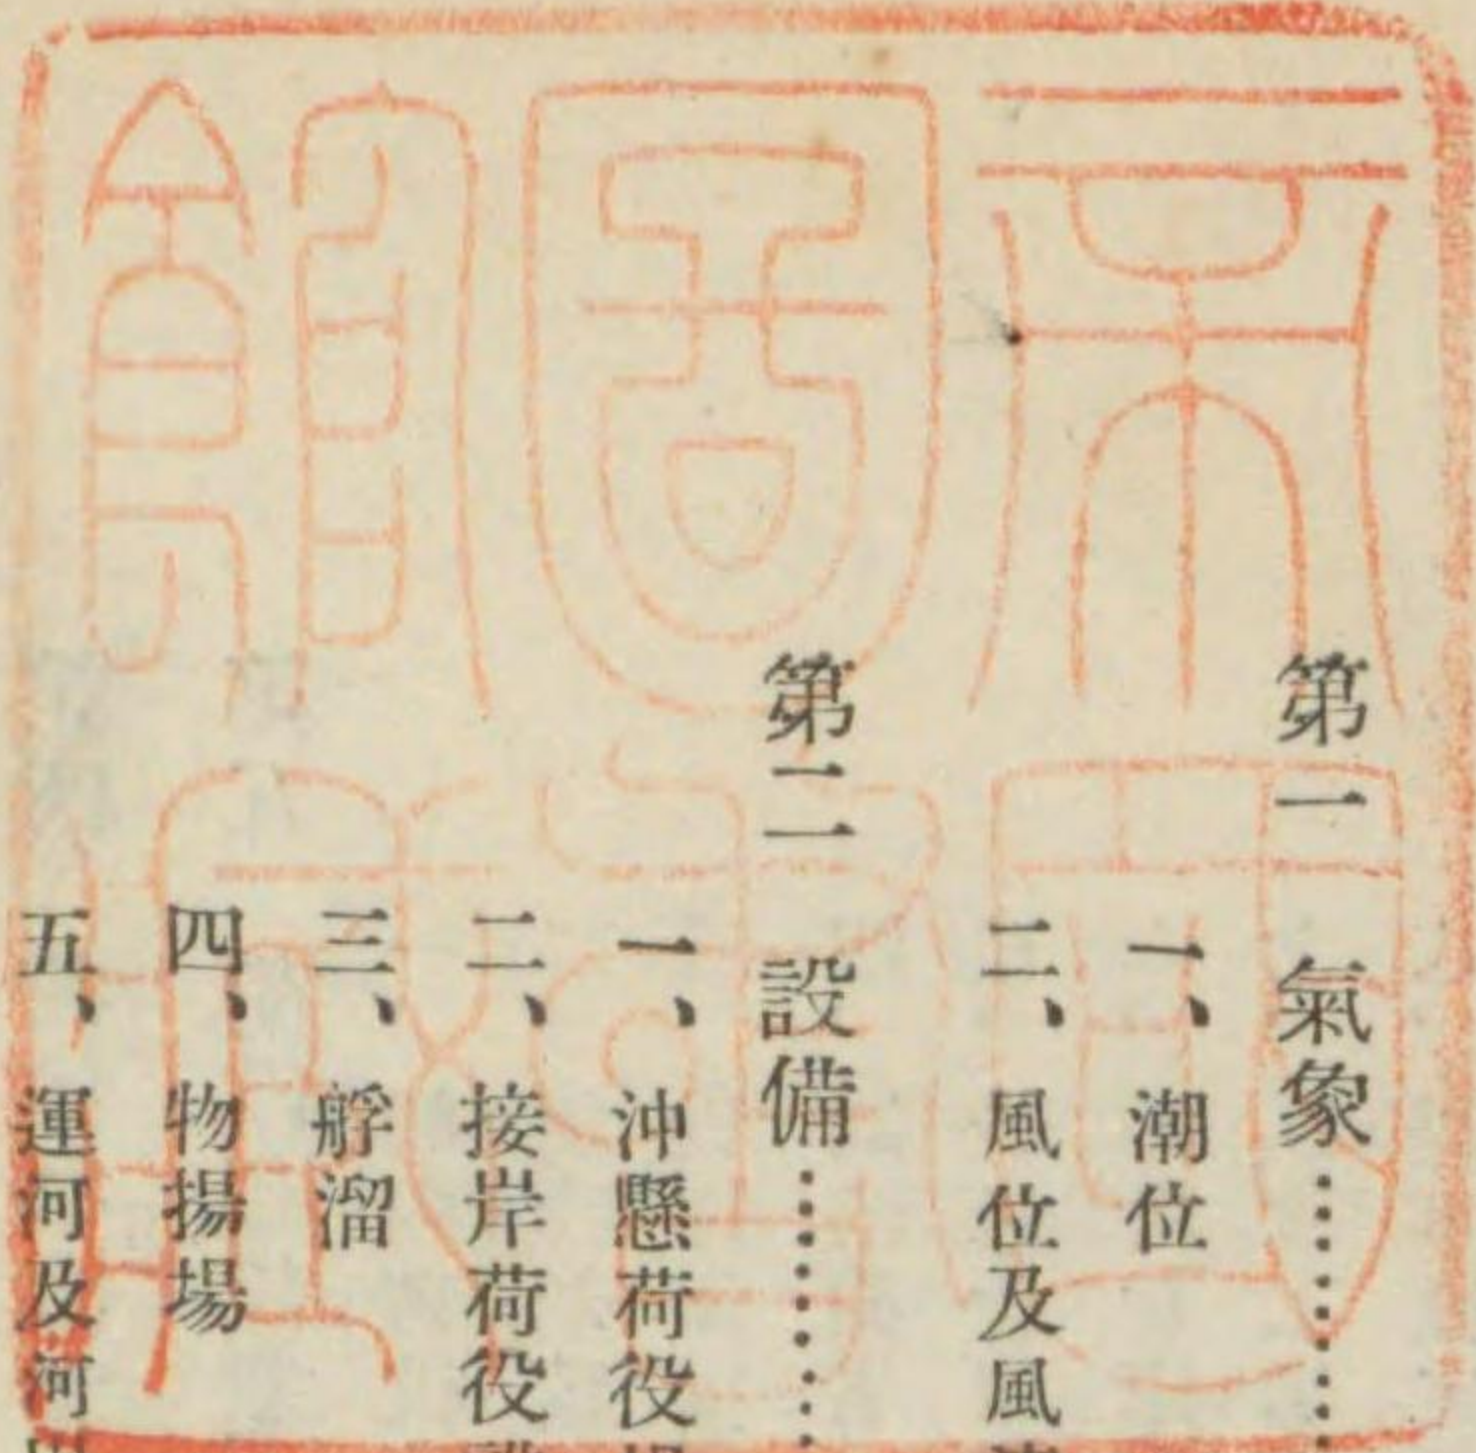 第一 氣象
一、潮位
二、風位及風
第二 設備
一、沖懸荷役
二、接岸荷役
三、艀溜
四、物揚場
五、運河及河
帝國圖書館藏